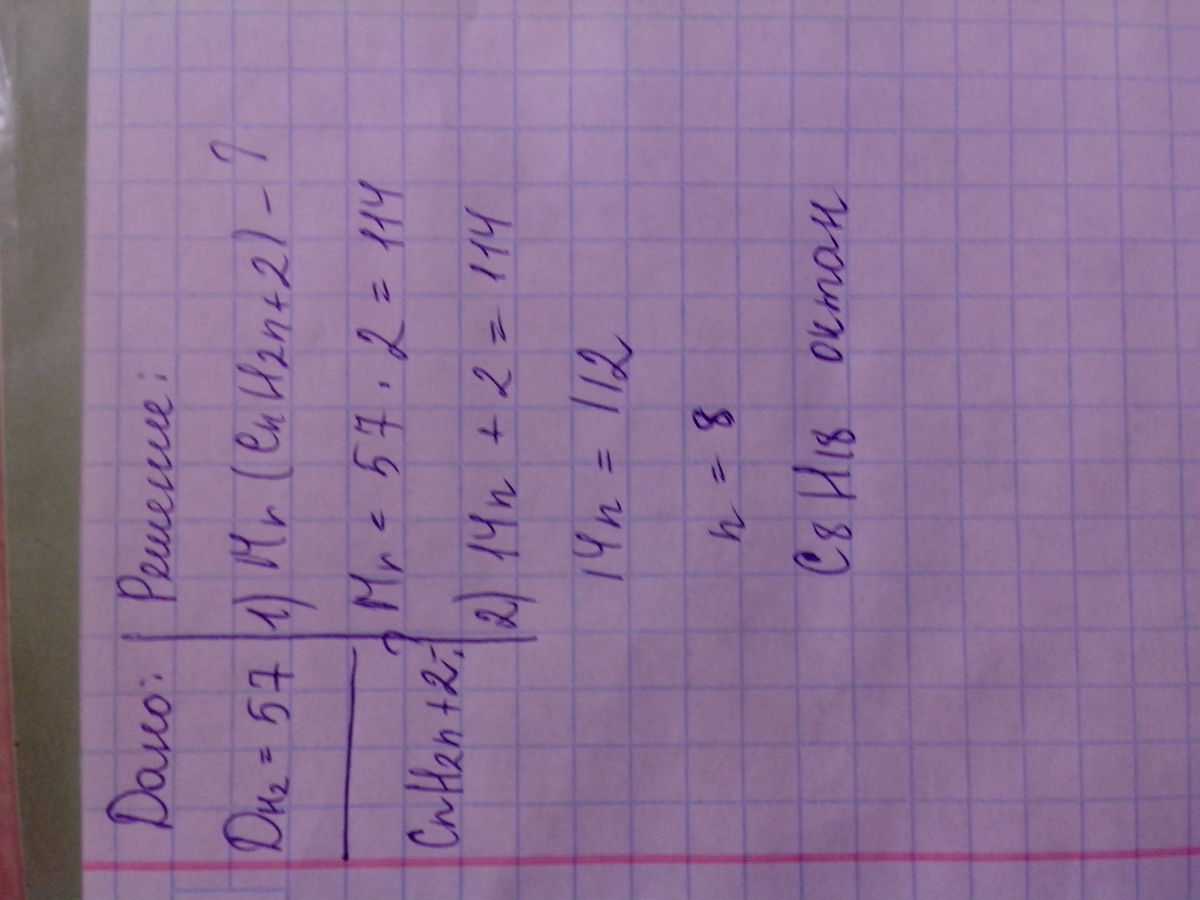 Дано:
D H2 = 57
CnH2n+2-?
Решение:
1) Mr (CnH2n+2) - ?
Mr = 57 · 2 = 114
2) 14n + 2 = 114
14n = 112
n = 8
C8H18 октан